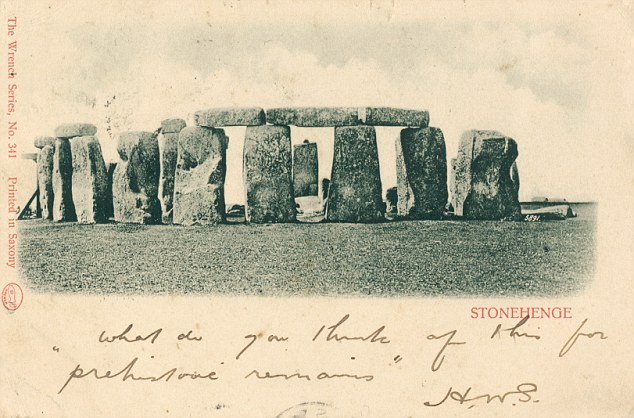 The Wrench Series, No. 341 Printed in Saxony
5891
STONEHENGE
what do you think of this for
"prehistoric remains"
H.W.S.